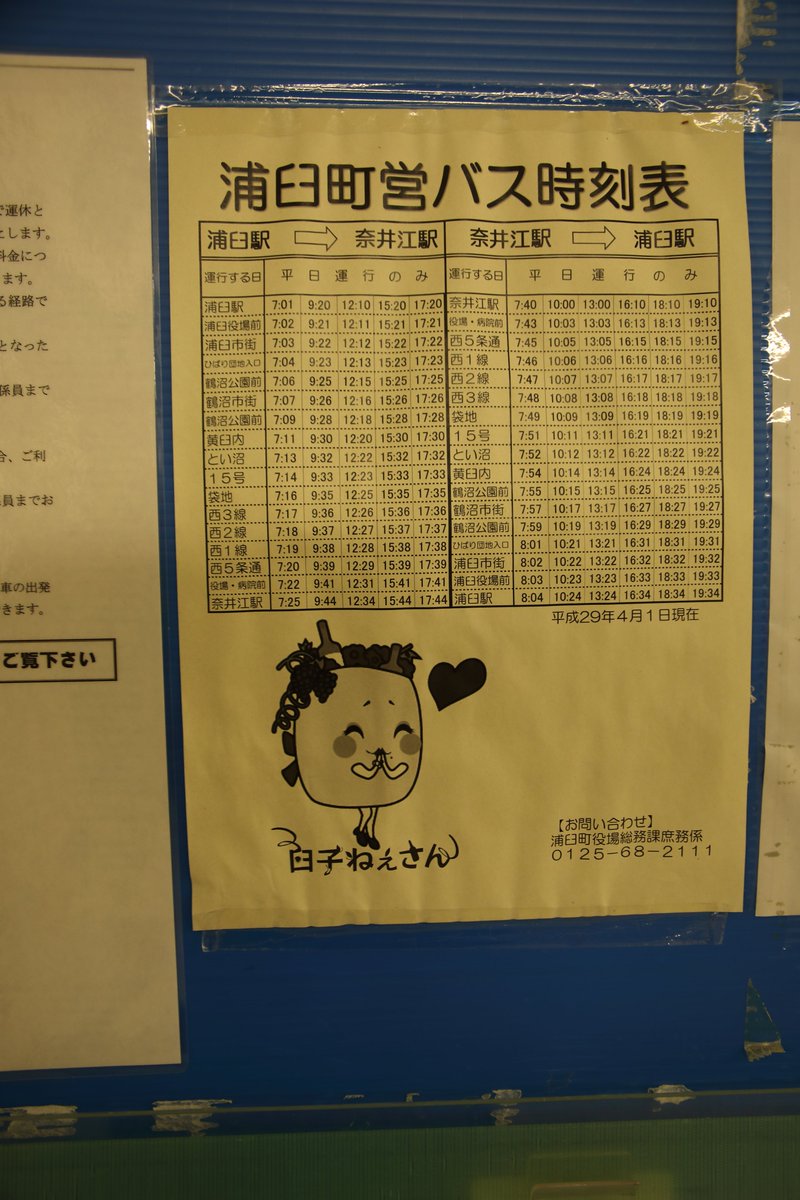 で運休と
とします。
料金につ
ます。
る経路で
となった
係員まで
合、ご利
係員までお
車の出発
できます。
ご覧下さい
浦臼町営バス時刻表
浦臼駅 ⇨ 奈井江駅
運行する日 平日運行のみ
浦臼駅 7:01 9:20 12:10 15:20 17:20
浦臼役場前 7:02 9:21 12:11 15:21 17:21
浦臼市街 7:03 9:22 12:12 15:22 17:22
ひばり団地入口 7:04 9:23 12:13 15:23 17:23
鶴沼公園前 7:06 9:25 12:15 15:25 17:25
鶴沼市街 7:07 9:26 12:16 15:26 17:26
鶴沼公園前 7:09 9:28 12:18 15:28 17:28
黄臼内 7:11 9:30 12:20 15:30 17:30
とい沼 7:13 9:32 12:22 15:32 17:32
15号 7:14 9:33 12:23 15:33 17:33
袋地 7:16 9:35 12:25 15:35 17:35
西3線 7:17 9:36 12:26 15:36 17:36
西2線 7:18 9:37 12:27 15:37 17:37
西1線 7:19 9:38 12:28 15:38 17:38
西5条通 7:20 9:39 12:29 15:39 17:39
役場・病院前 7:22 9:41 12:31 15:41 17:41
奈井江駅 7:25 9:44 12:34 15:44 17:44
奈井江駅 ⇨ 浦臼駅
運行する日 平日運行のみ
奈井江駅 7:40 10:00 13:00 16:10 18:10 19:10
役場・病院前 7:43 10:03 13:03 16:13 18:13 19:13
西5条通 7:45 10:05 13:05 16:15 18:15 19:15
西1線 7:46 10:06 13:06 16:16 18:16 19:16
西2線 7:47 10:07 13:07 16:17 18:17 19:17
西3線 7:48 10:08 13:08 16:18 18:18 19:18
袋地 7:49 10:09 13:09 16:19 18:19 19:19
15号 7:51 10:11 13:11 16:21 18:21 19:21
とい沼 7:52 10:12 13:12 16:22 18:22 19:22
黄臼内 7:54 10:14 13:14 16:24 18:24 19:24
鶴沼公園前 7:55 10:15 13:15 16:25 18:25 19:25
鶴沼市街 7:57 10:17 13:17 16:27 18:27 19:27
鶴沼公園前 7:59 10:19 13:19 16:29 18:29 19:29
ひばり団地入口 8:01 10:21 13:21 16:31 18:31 19:31
浦臼市街 8:02 10:22 13:22 16:32 18:32 19:32
浦臼役場前 8:03 10:23 13:23 16:33 18:33 19:33
浦臼駅 8:04 10:24 13:24 16:34 18:34 19:34
平成29年4月1日現在
臼子ねぇさん
【お問い合わせ】
浦臼町役場総務課庶務係
0125-68-2111